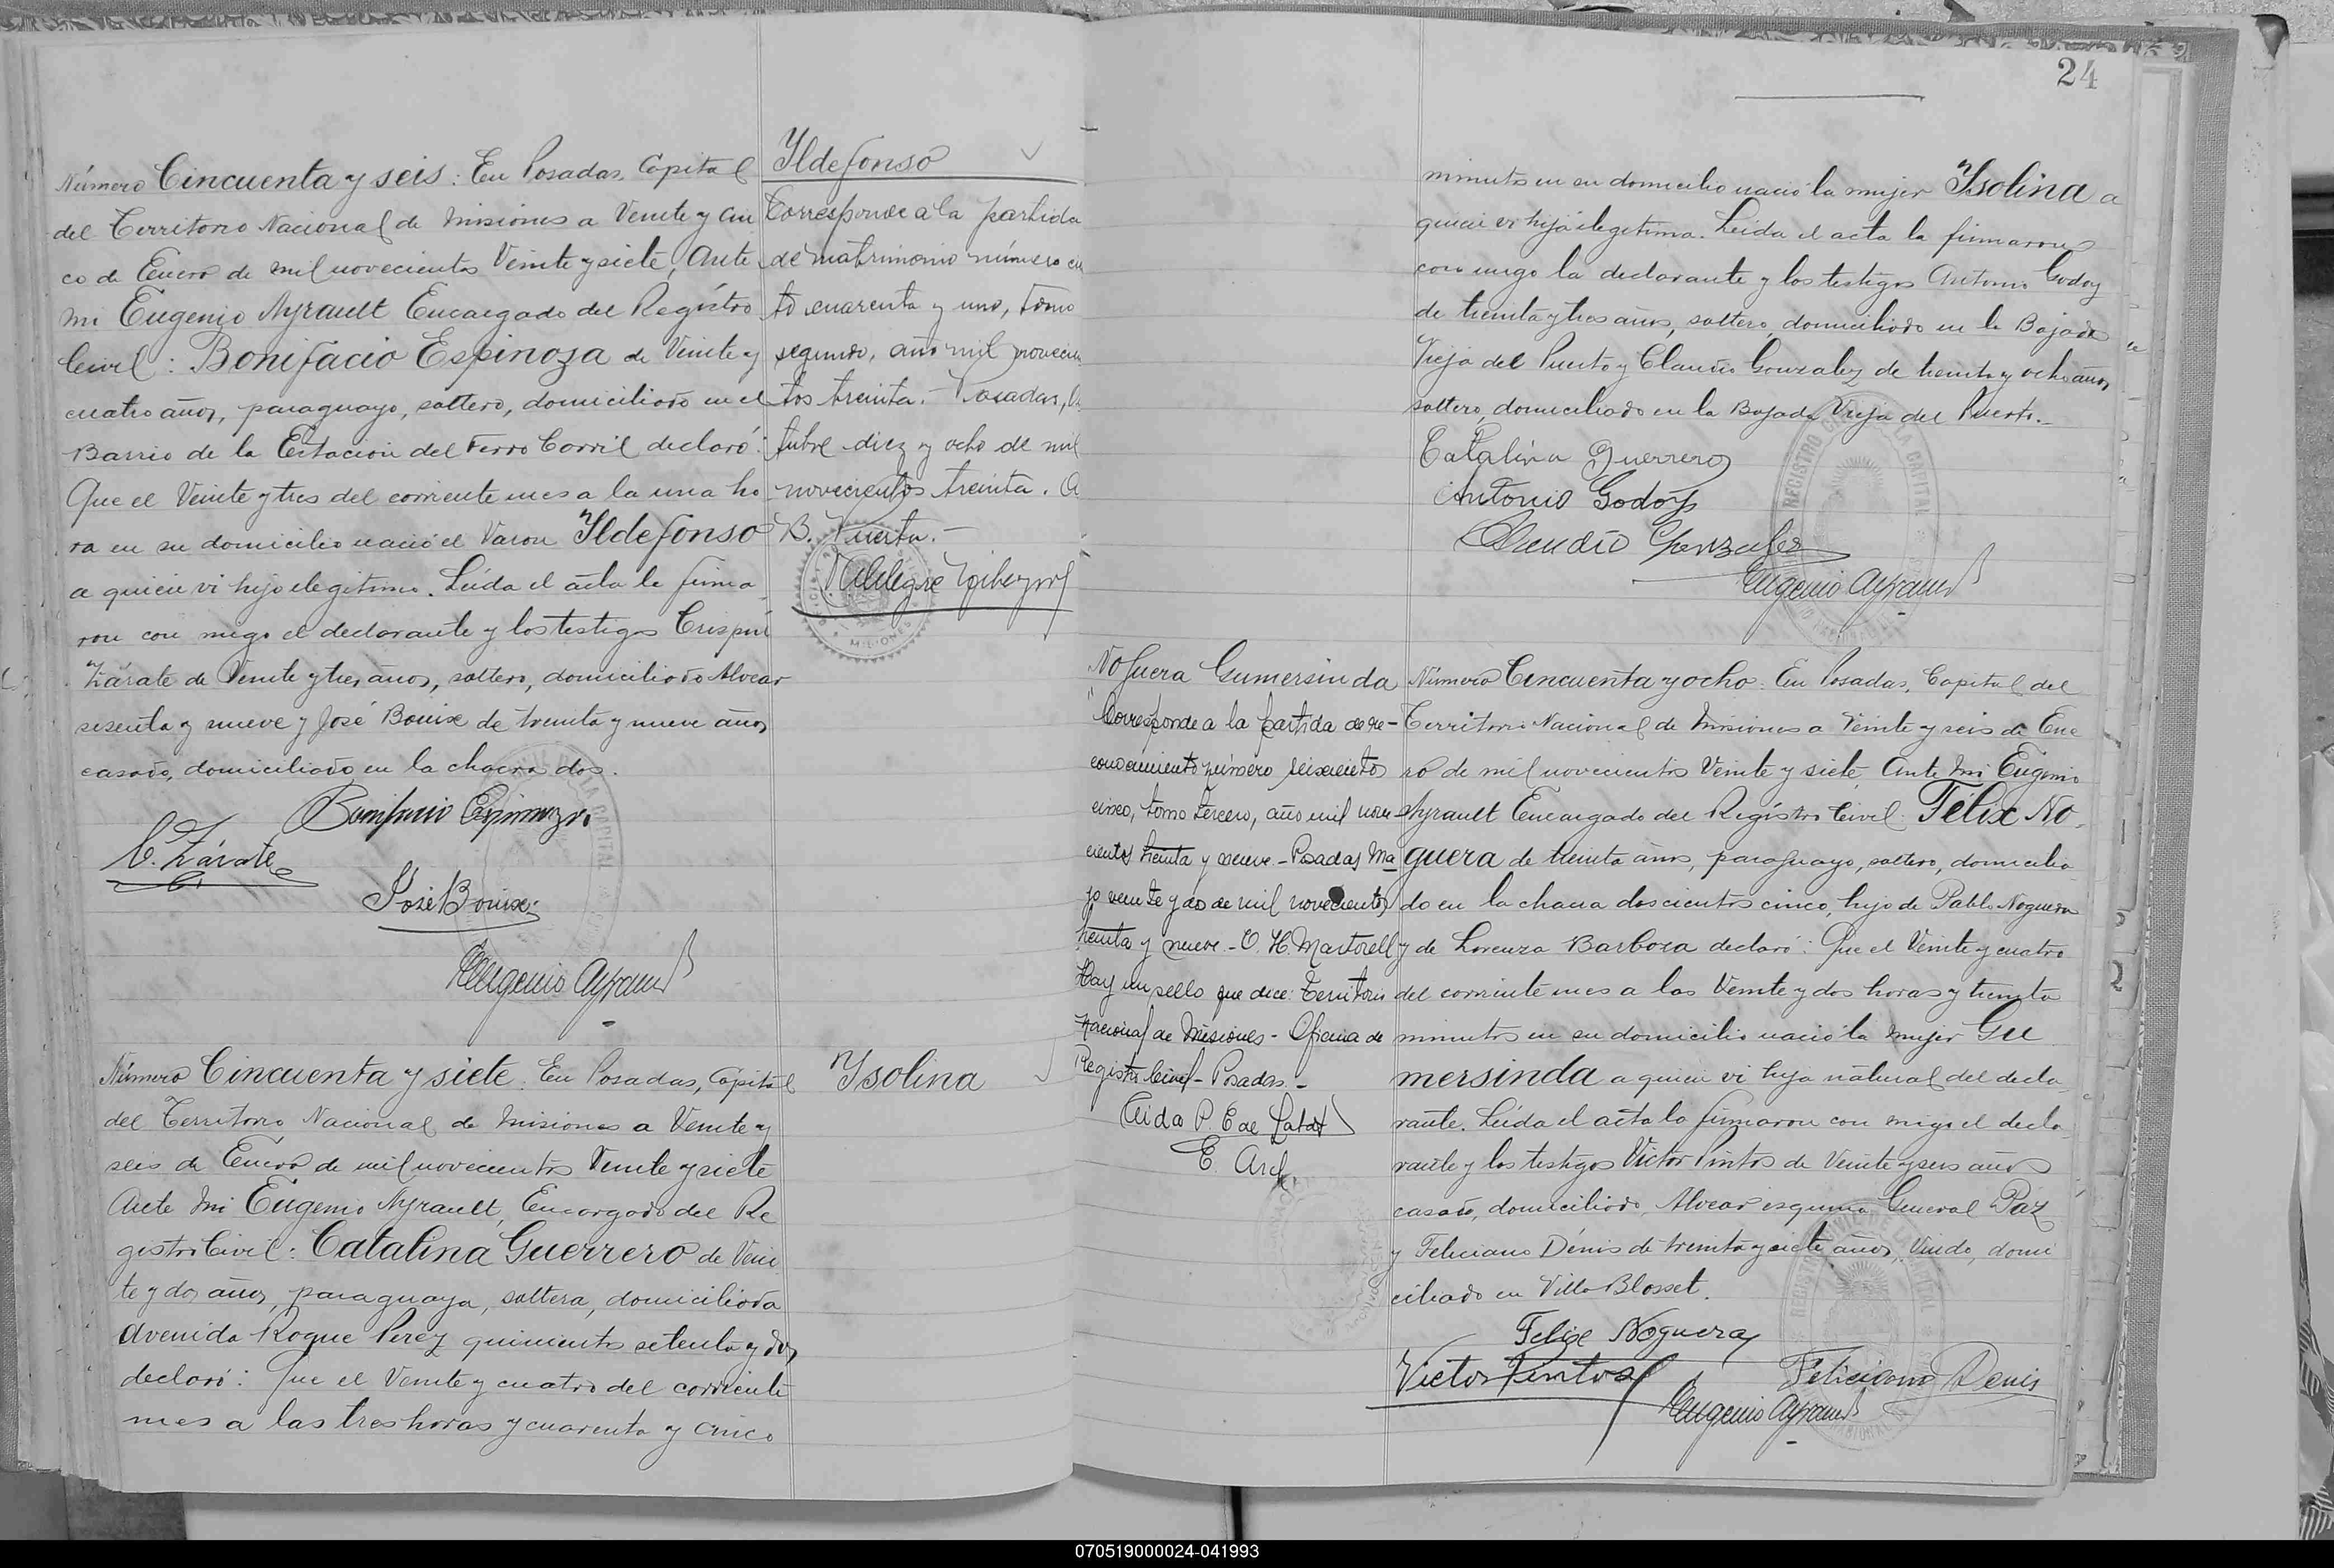 Número Cincuenta y seis: En Posadas, Capital
del Territorio Nacional de Misiones a Veinte y cin
co de Enero de mil novecientos Veinte y siete, Ante
mi Eugenio Ayrault Encargado del Registro
Civil: Bonifacio Espinoza de Veinte y
cuatro años, paraguayo, soltero, domiciliado en el
Barrio de la Estacion del Ferro Carril declaró:
Que el Veinte y tres del corriente mes a la una ho
ra en su domicilio nació el Varon Ildefonso
a quien vi hijo ilegitimo. Leida el acta la firma
ron con migo el declarante y los testigos Crispin
Zárate de Veinte y tres años, soltero, domiciliado Alvear
sesenta y nueve y José Bouix de treinta y nueve años
casado, domiciliado en la chacra dos.
Bonifacio Espinoza
C. Zárate
José Bouix
Eugenio Ayrault
Ildefonso
Corresponde a la partida
de matrimonio número cien
to cuarenta y uno, tomo
segundo, año mil novecien
tos treinta. Posadas, Oc
tubre diez y ocho de mil
novecientos treinta. A
B. Puerta.-
Número Cincuenta y siete: En Posadas, Capital
del Territorio Nacional de Misiones a Veinte y
seis de Enero de mil novecientos Veinte y siete
Ante mi Eugenio Ayrault, Encargado del Re
gistro Civil: Catalina Guerrero de Vein
te y dos años, paraguaya, soltera, domiciliada
Avenida Roque Perez quinientos setenta y dos
declaró: Que el Veinte y cuatro del corriente
mes a las tres horas y cuarenta y cinco
Ysolina
24
minutos en su domicilio nació la mujer Ysolina a
quien vi hija ilegitima. Leida el acta la firmaron
con migo la declarante y los testigos Antonio Godoy
de treinta y tres años, soltero, domiciliado en la Bajada
Vieja del Puerto y Claudio Gonzalez de treinta y ocho años,
soltero, domiciliado en la Bajada Vieja del Puerto.-
Catalina Guerrero
Antonio Godoy
Claudio Gonzalez
Eugenio Ayrault
Noguera Gumersinda
Corresponde a la partida de re-
conocimiento número seiscientos
cinco, tomo tercero, año mil nove
cientos treinta y nueve - Posadas Ma
yo veinte y dos de mil novecientos
treinta y nueve.- O. H. Martorell
Hay un sello que dice: Territorio
Nacional de Misiones - Oficina de
Registro Civil - Posadas.-
Aida P. E de
E. Arch.
Número Cincuenta y ocho: En Posadas, Capital del
Territorio Nacional de Misiones a Veinte y seis de Ene
ro de mil novecientos Veinte y siete, Ante Mi Eugenio
Ayrault Encargado del Registro Civil: Félix No-
guera de treinta años, paraguayo, soltero, domicilia
do en la chacra doscientos cinco, hijo de Pablo Noguera
y de Lorenza Barboza declaró: Que el Veinte y cuatro
del corriente mes a las Veinte y dos horas y treinta
minutos en su domicilio nació la mujer Gu
mersinda a quien vi hija natural del decla
rante. Leida el acta la firmaron con migo el decla
rante y los testigos Victor Pintos de Veinte y seis años
casado, domiciliado Alvear esquina General Paz
y Feliciano Dénis de treinta y siete años, Viudo, domi
ciliado en Villa Blosset.
Felix Noguera
Victor Pintos
Feliciano Denis
Eugenio Ayrault
070519000024-041993